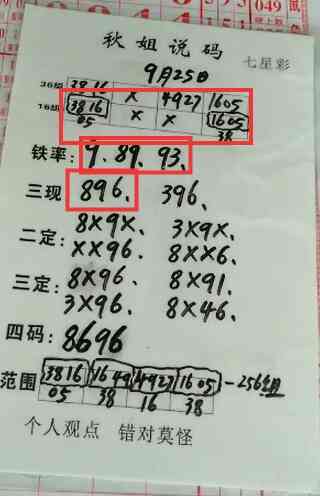 049
秋姐说码 七星彩
9月25日
36组 3816 X 4927 1605
16组 3816 X X 1605
05 38
铁率: 9. 89. 93.
三现 896. 396.
二定: 8X9X. 3X9X.
XX96. 8XX6.
三定: 8X96. 8X91.
3X96. 8X46.
四码: 8696
范围 3816 1649 4927 1605 -256组
05 38 16 38
个人观点 错对莫怪